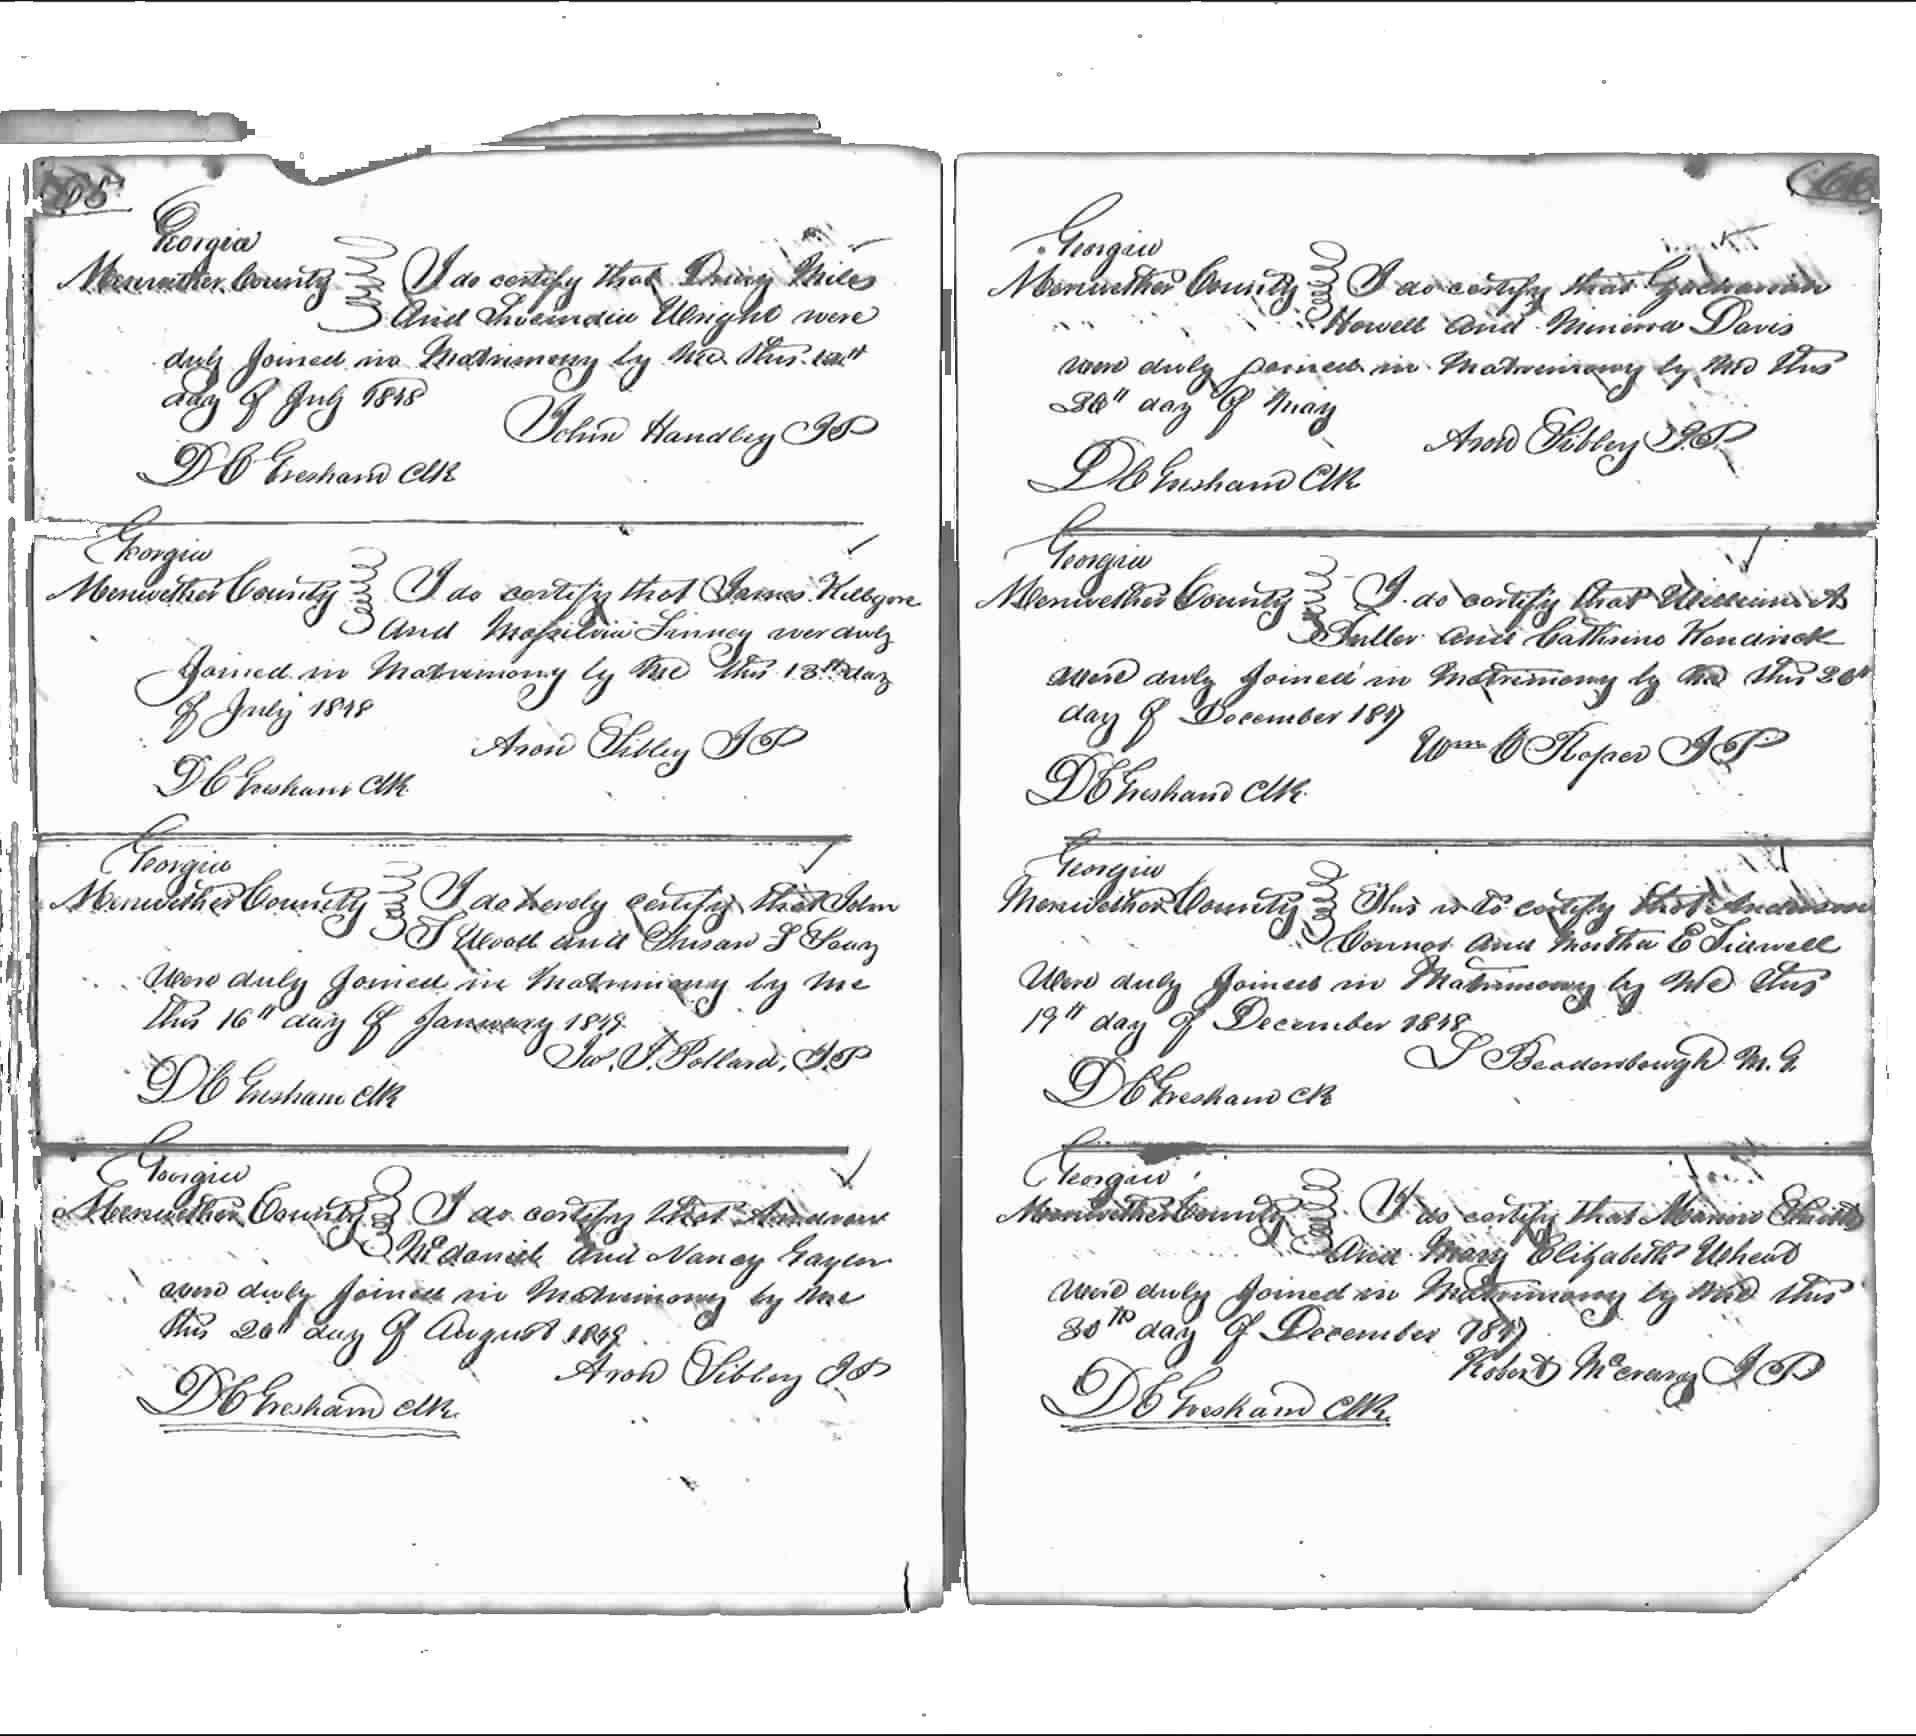 65
Georgia
Meriwether County I do certify that Drury Miles
And Lucindia Wright were
duly Joined in Matrimony by Me this
day of July 1848
John Handley JP
D C Gresham Clk
Georgia
Meriwether County I do certify that James Kilbgore
And Finney wer duly
Joined in Matrimony by Me this 13th day
of July 1848
Aron Sibley JP
D C Gresham Clk
Georgia
Meriwether County I do herby certify that John
T Wood and Susan S
Were duly Joined in Matrimony by me
this 16th day of January 1849
Jas. T. Pollard, J.P
D C Gresham Clk
Georgia
Meriwether County I do certify that Andrew
McDaniel and Nancy Gayler
were duly Joined in Matrimony by Me
this 26th day of August 1849
Aron Sibley JP
D C Gresham Clk.
66
Georgia
Meriwether County I do certify that Zachariah
Howell and Minerva Davis
were duly joined in Matrimony by Me this
30th day of May
Aron Sibley J.P.
D C Gresham Clk
Georgia
Meriwether County I do certify that William A
Fuller and Cathrine Kendrick
were duly Joined in Matrimony by Me this 26th
day of December 1847
Wm O Roper JP
D C Gresham Clk.
Georgia
Meriwether County This is to certify that Anderson
Connor and Martha E Tidwell
Were duly Joined in Matrimony by Me this
19th day of December 1848
S M.G.
D C Gresham Ck
Georgia
Meriwether County I do certify that Marion
And Mary Elizabeth Wheat
Were duly Joined in Matrimony by Me this
30th day of December 1847
Robert McCrary JP
D C Gresham Clk.